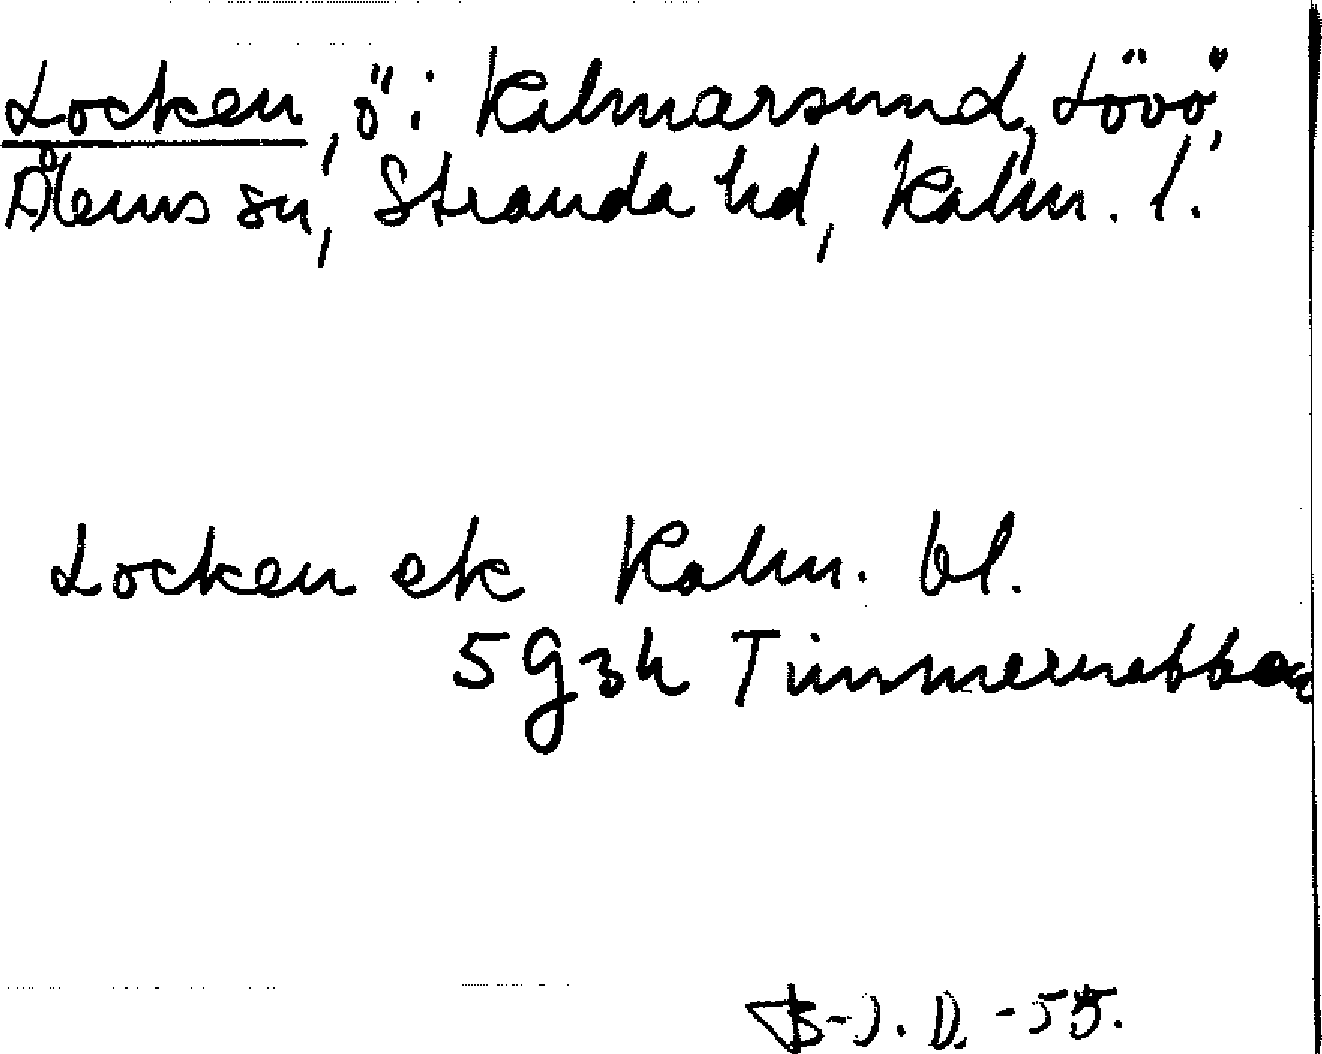 Locken, ö i Kalmarsund, Lövö,
Ålems sn, Stranda hd, Kalm. l.
Locken ek Kalm. bl.
5 G 3h Timmernabben
B-J. D. -55.